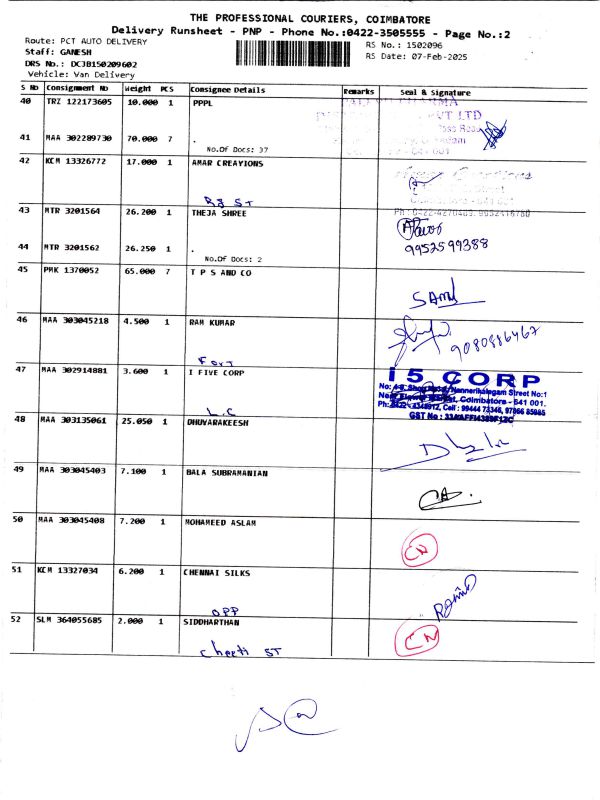 THE PROFESSIONAL COURIERS, COIMBATORE
Delivery Runsheet - PNP - Phone No.:0422-3505555 - Page No.:2
Route: PCT AUTO DELIVERY
RS No.: 1502096
Staff: GANESH
RS Date: 07-Feb-2025
DRS No.: DCJB150209602
Vehicle: Van Delivery
S No Consignment No Weight PCS Consignee Details Remarks Seal & Signature
40 TRZ 122173605 10.000 1 PPPL
PVT LTD
41 MAA 302289730 70.000 7 .
No.Of Docs: 37
42 KCM 13326772 17.000 1 AMAR CREAYIONS
Rg ST
43 MTR 3201564 26.200 1 THEJA SHREE
Ph: 0422-4270469, 9952418780
9952599388
44 MTR 3201562 26.250 1 .
No.Of Docs: 2
45 PMK 1370052 65.000 7 T P S AND CO
46 MAA 303045218 4.500 1 RAM KUMAR
9080986467
Fort
47 MAA 302914881 3.600 1 I FIVE CORP
i 5 CORP
Nannerikalagam Street No:1
Coimbatore - 641 001.
Cell : 99444 73346, 97866 85985
GST No :
L.C
48 MAA 303135061 25.050 1 DHUVARAKEESH
49 MAA 303045403 7.100 1 BALA SUBRAMANIAN
50 MAA 303045408 7.200 1 MOHAMEED ASLAM
CN
51 KCM 13327034 6.200 1 CHENNAI SILKS
OPP
52 SLM 364055685 2.000 1 SIDDHARTHAN
CN
Cheeti ST